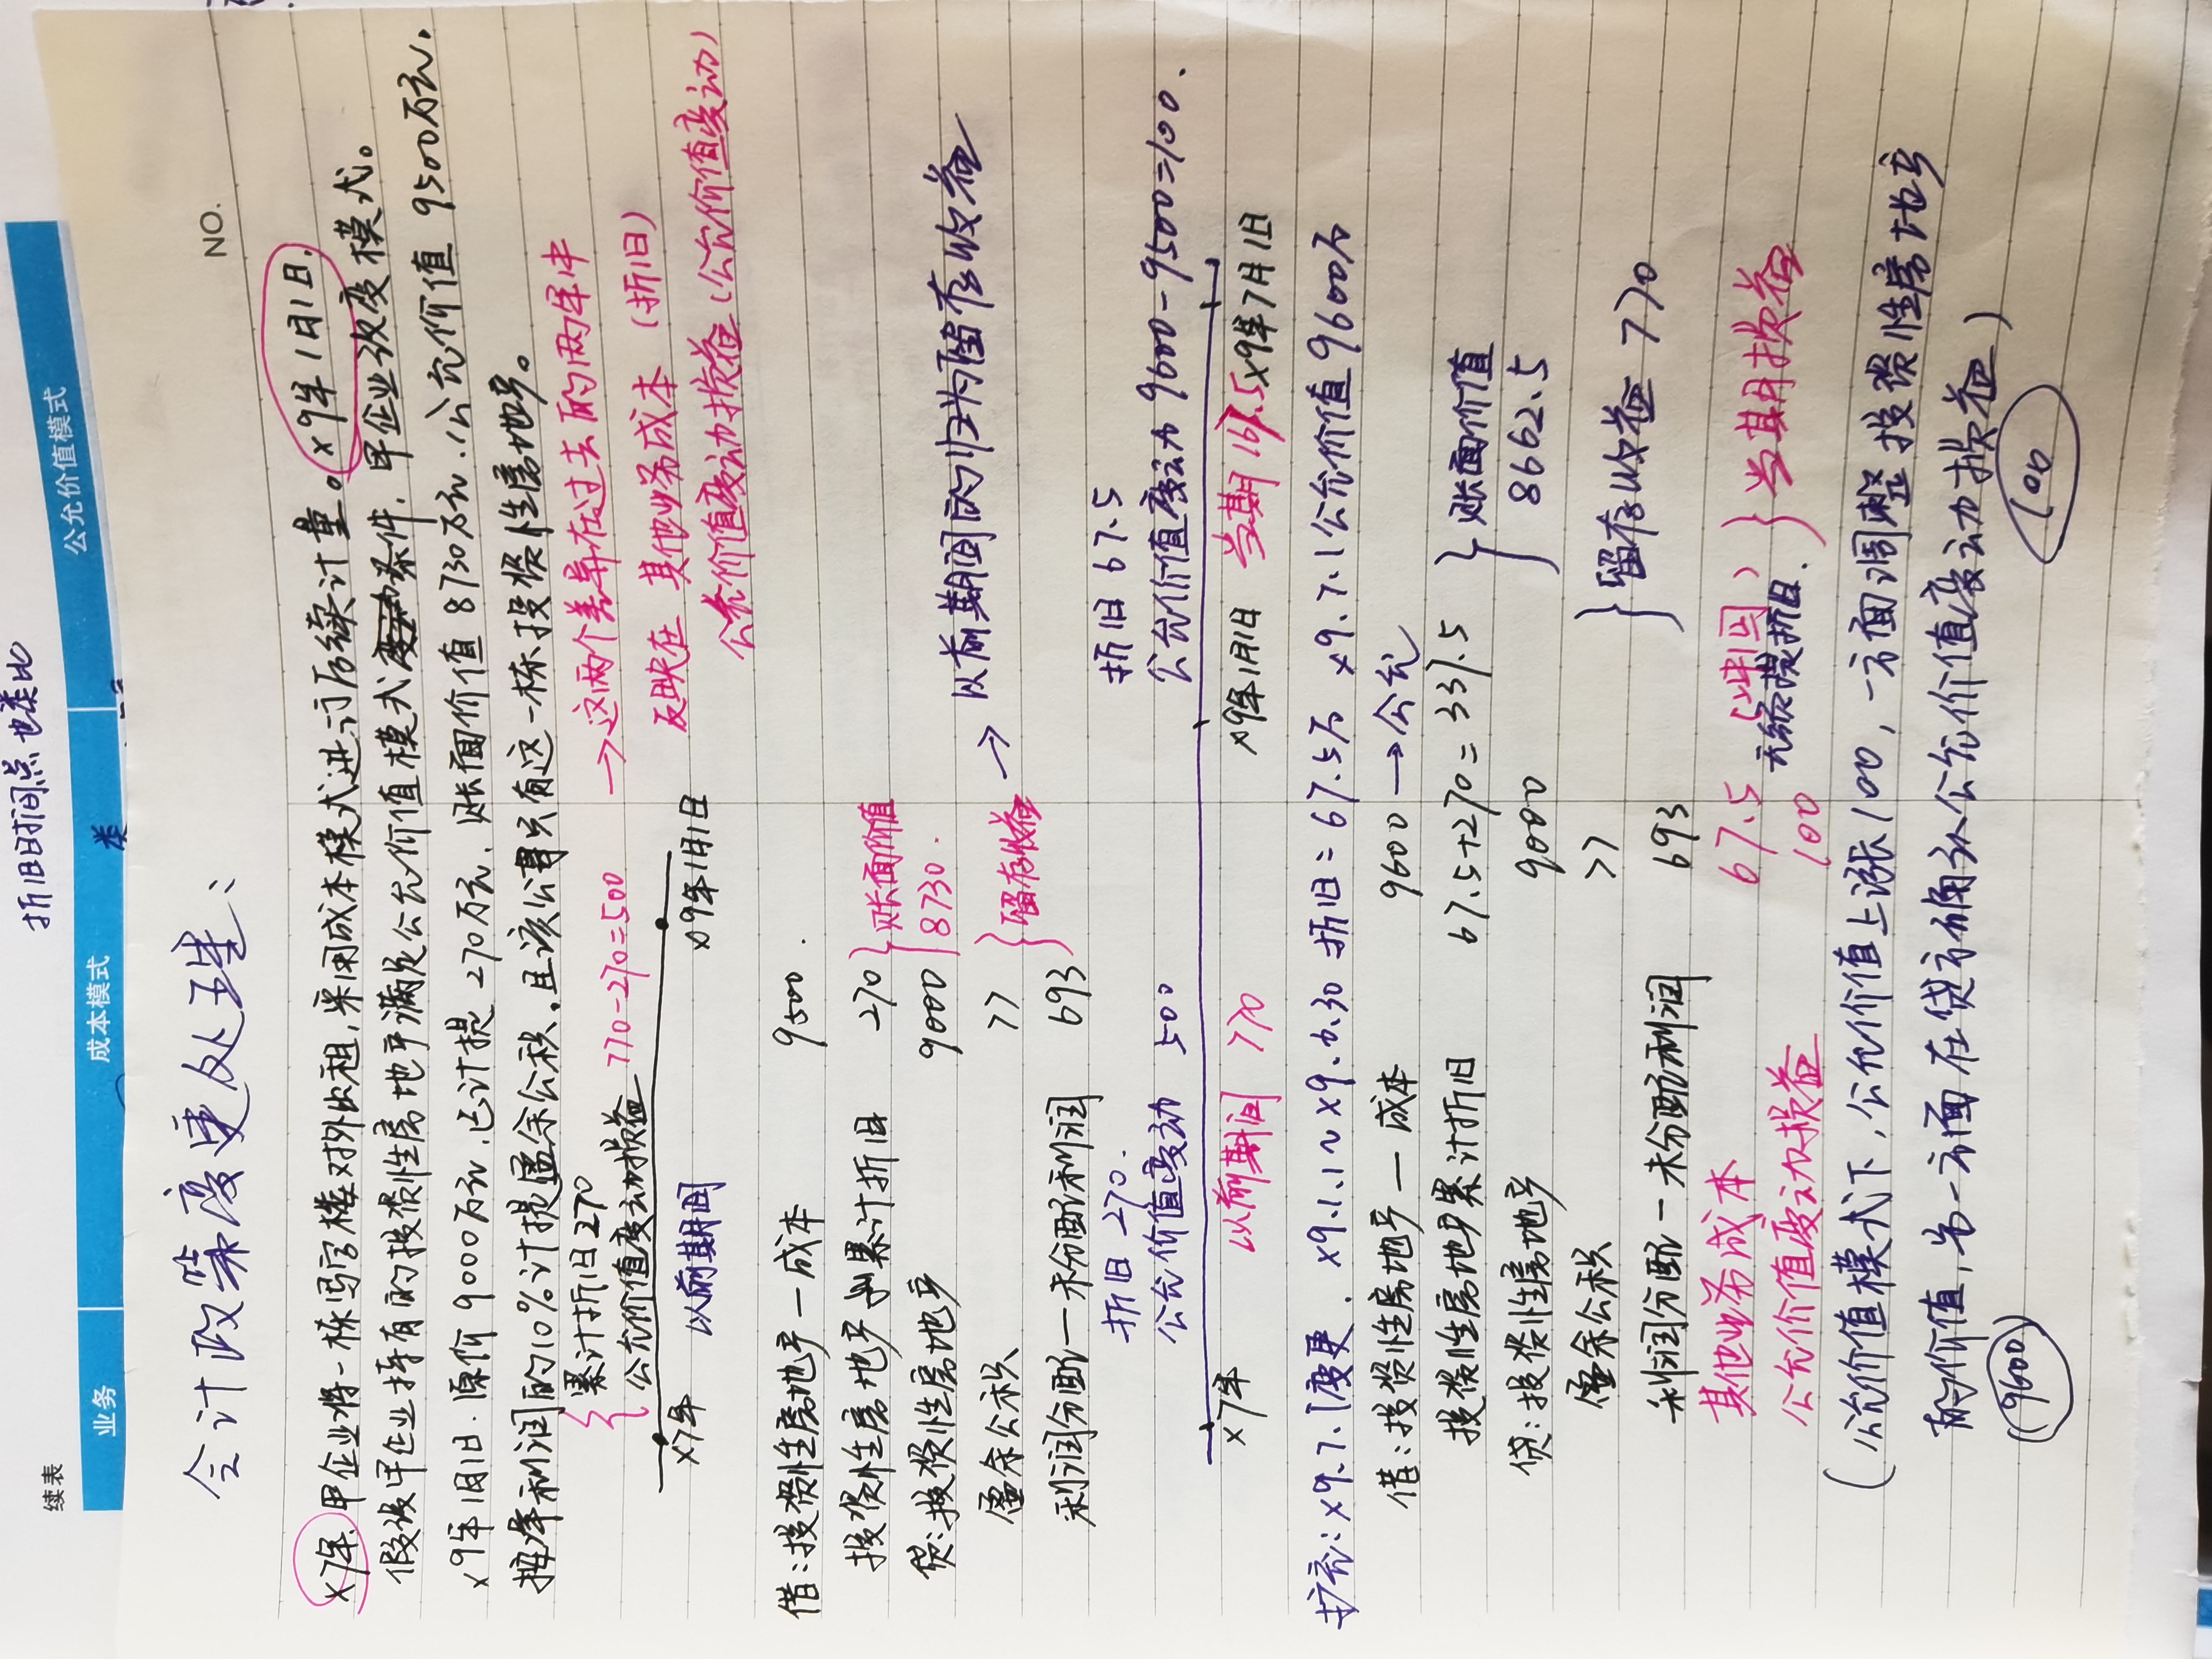 折旧时间点也类比
续表
业务 成本模式 公允价值模式
类
NO.
会计政策变更处理、
×7年,甲企业将一栋写字楼对外出租,采用成本模式进行后续计量。×9年1月1日,
假设甲企业持有的投资性房地产满足公允价值模式条件,甲企业改变模式。
×9年1月1日,原价9000万元,已计提270万元,账面价值8730万元,公允价值9500万元.
按净利润的10%计提盈余公积,且该公司只有这一栋投资性房地产。
累计折旧270
公允价值变动损益 770-270=500
→这两个差异在过去的两年中
反映在 其他业务成本 (折旧)
公允价值变动损益(公允价值变动)
×7年 以前期间 ×9年1月1日
借:投资性房地产—成本 9500
投资性房地产累计折旧 270
贷:投资性房地产 9000
}账面价值 8730.
盈余公积 77
利润分配—未分配利润 693
}留存收益
→ 以前期间的归为留存收益
折旧 270.
公允价值变动 500
折旧 67.5
公允价值变动 9600-9500=100.
×7年 以前期间 770 ×9年1月1日 当期 167.5 ×9年7月1日
扩充:×9.7.1变更. ×9.1.1~×9.6.30 折旧=67.5万 ×9.7.1公允价值9600万
借:投资性房地产—成本 9600→公允
投资性房地产累计折旧 67.5+270=337.5
贷:投资性房地产 9000
}账面价值 8662.5
盈余公积 77
利润分配—未分配利润 693
}留存收益 770
其他业务成本 67.5(冲回)
无须提折旧.
公允价值变动损益 100
}当期损益
(公允价值模式下,公允价值上涨100,一方面调整投资性房地产
的价值,另一方面在贷方确认公允价值变动损益)
(9600) 100